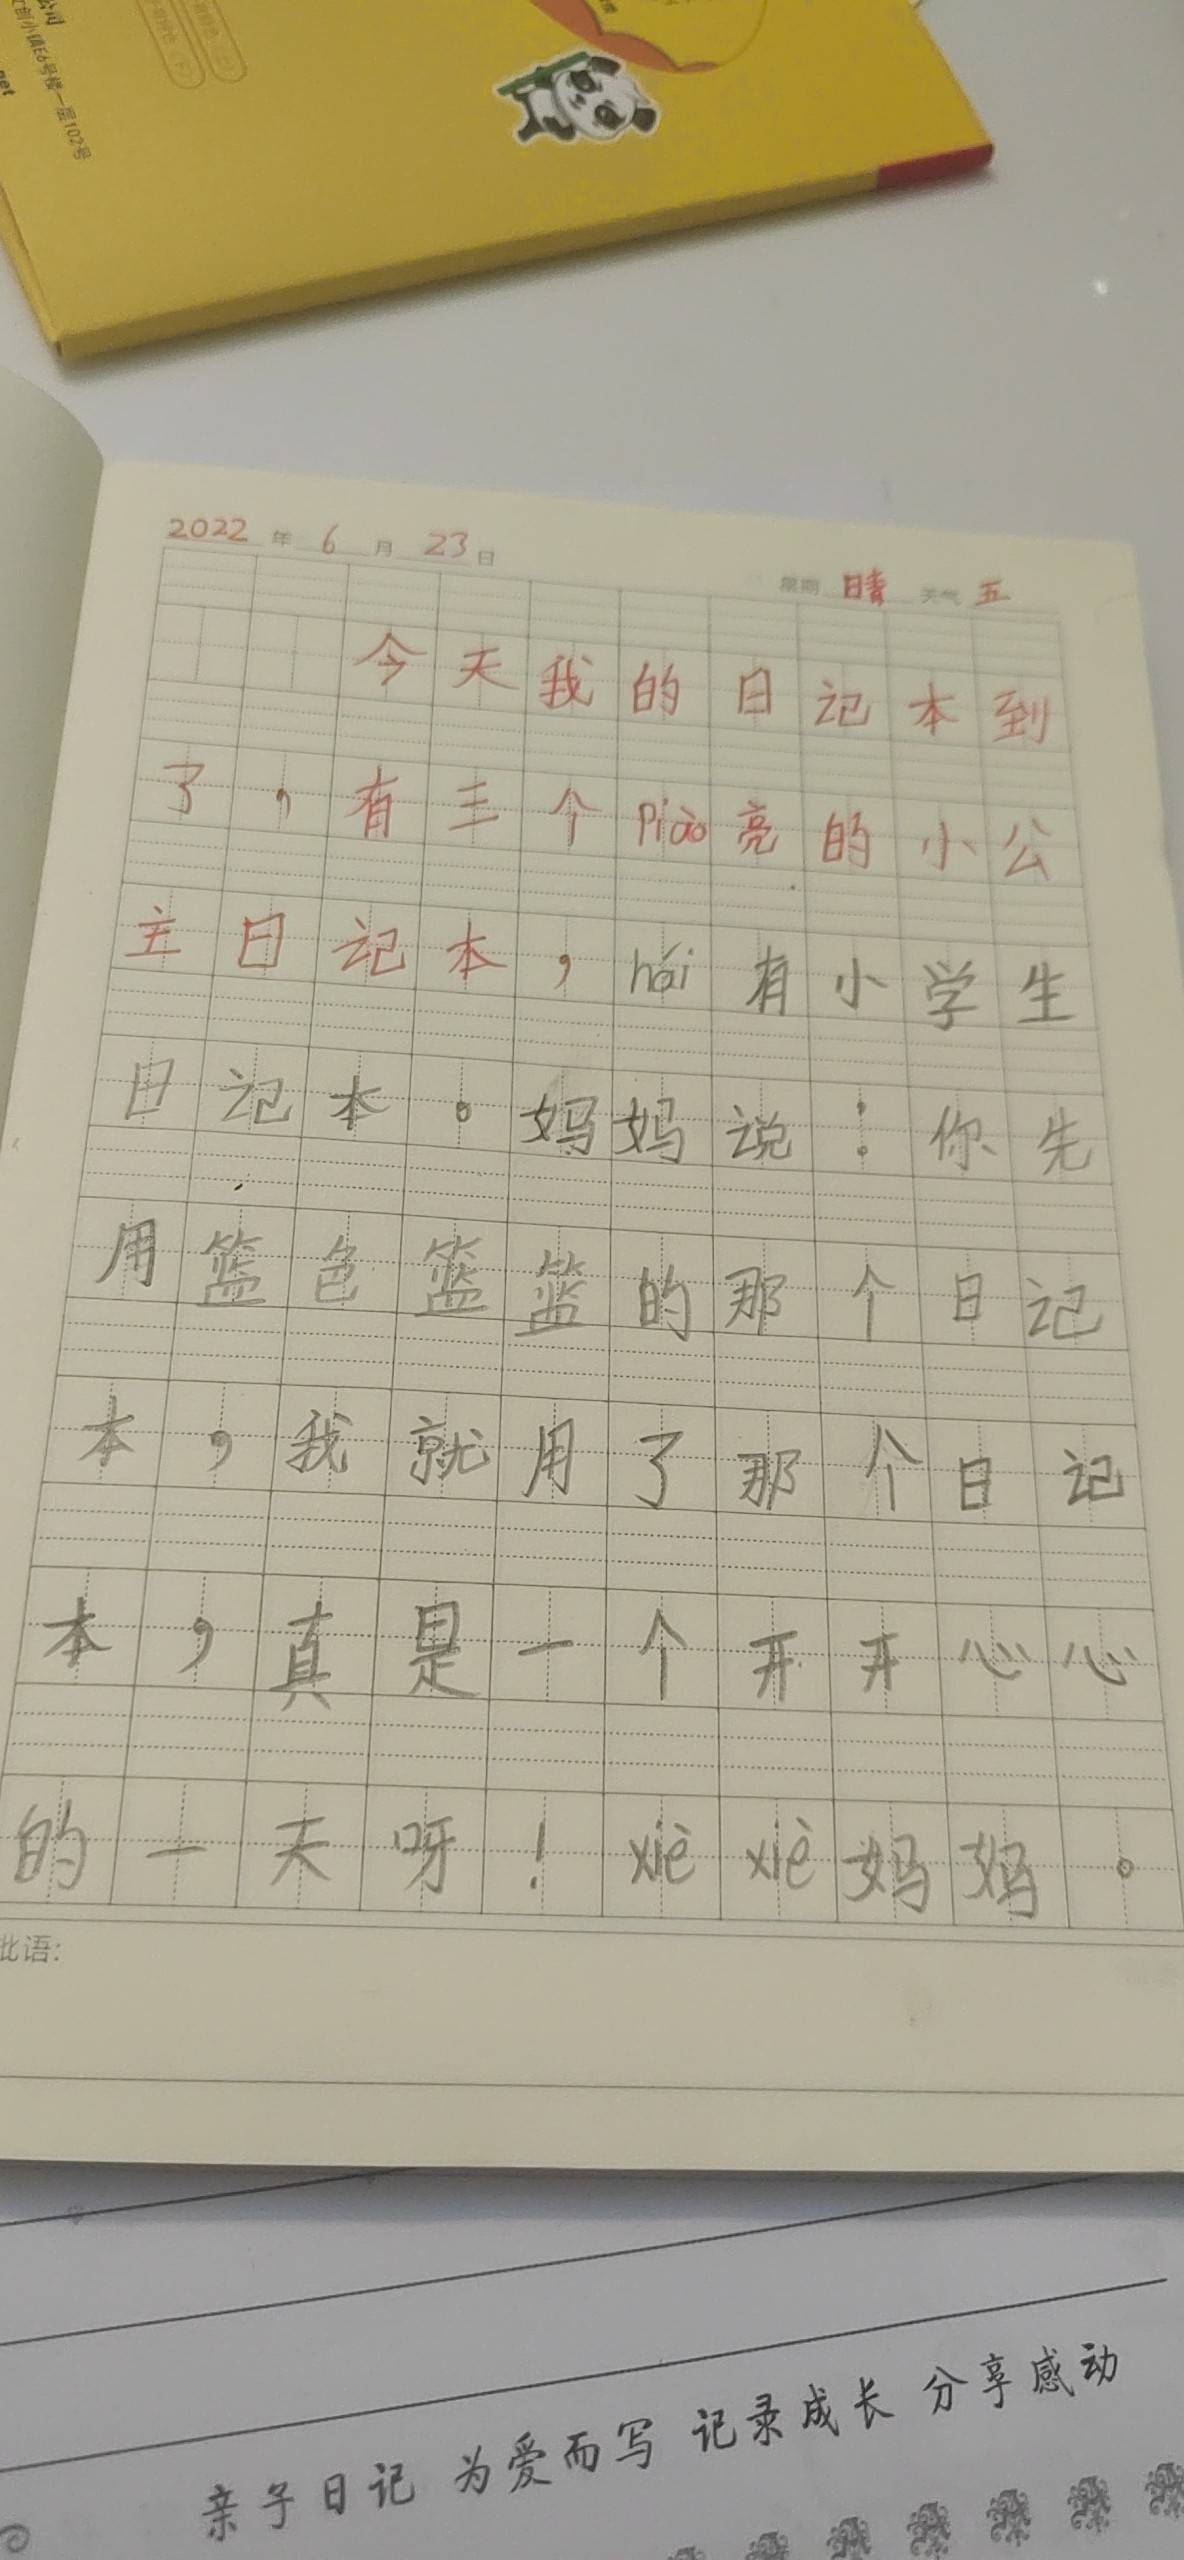 公司
文创小镇E6号楼一层102号
net
2022年6月23日 星期 晴 天气 五
今天我的日记本到
了，有三个piào亮的小公
主日记本，hái有小学生
日记本。妈妈说：你先
用篮色篮篮的那个日记
本，我就用了那个日记
本，真是一个开开心心
的一天呀！xiè xiè妈妈。
批语：
亲子日记 为爱而写 记录成长 分享感动